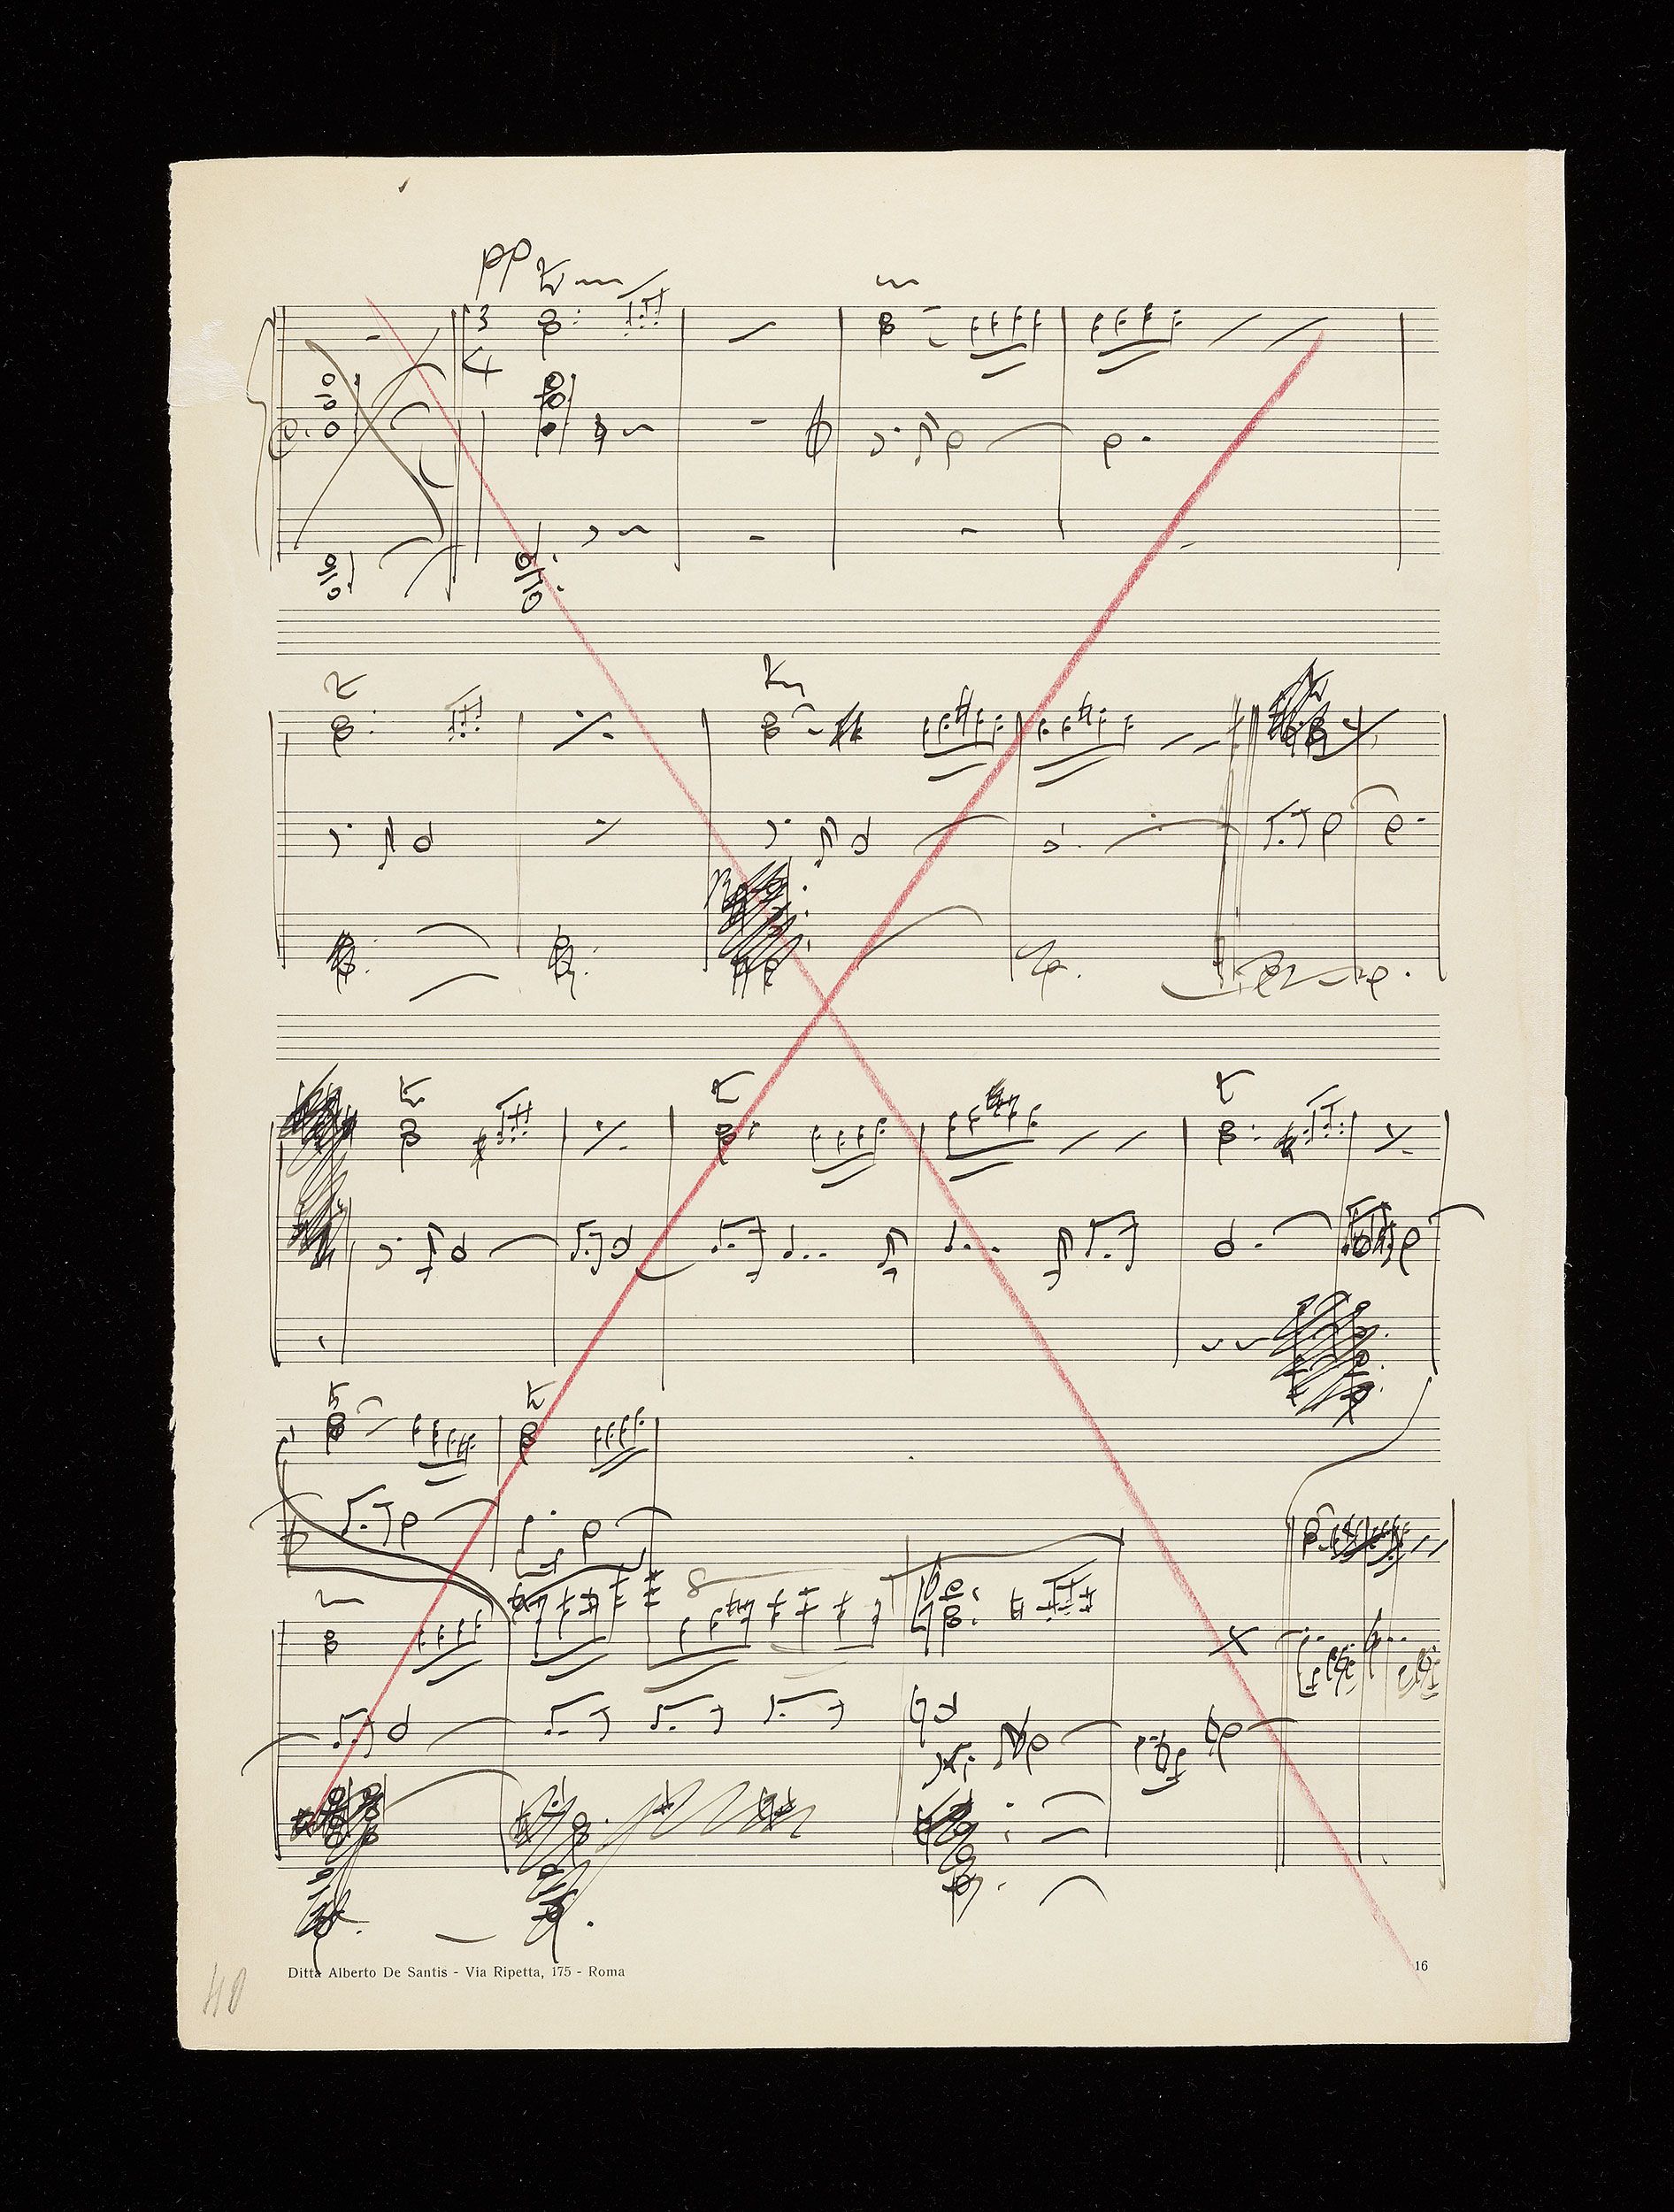 pp
3
4
8
Ditta Alberto De Santis - Via Ripetta, 175 - Roma
16
40